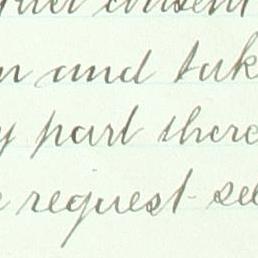 consent
and tak
part there
request see